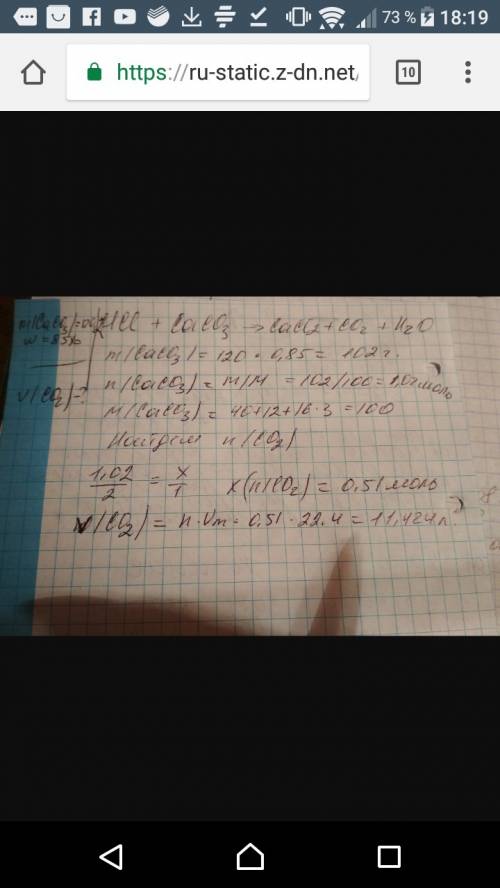 73 % 18:19
https://ru-static.z-dn.net/
10
m(CaCO3)= HCl + CaCO3 → CaCl2 + CO2 + H2O
w = 85%
m(CaCO3) = 120 · 0,85 = 102 г.
V(CO2)-? n(CaCO3) = m/M = 102/100 = 1,02 моль
M(CaCO3) = 40+12+16·3 = 100
Найдем n(CO2)
1,02/2 = x/1 x(n(CO2) = 0,51 моль
V(CO2) = n·Vm = 0,51 · 22.4 = 11,424 л.